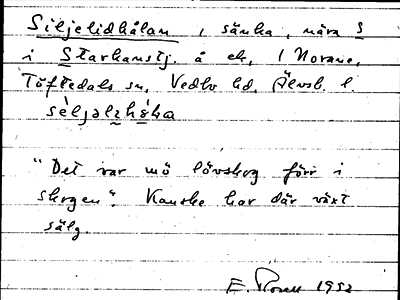 Siljelidhålan, sänka, nära S
i Starkanstj. å ek. 1 Norane,
Töftedals sn, Vedbo hd, Älvsb. l.
séljəlɩhə̀ka
"Det var mö lövskog förr i
skogen". Kanske har där växt
sälg.
E. Rosell 1952